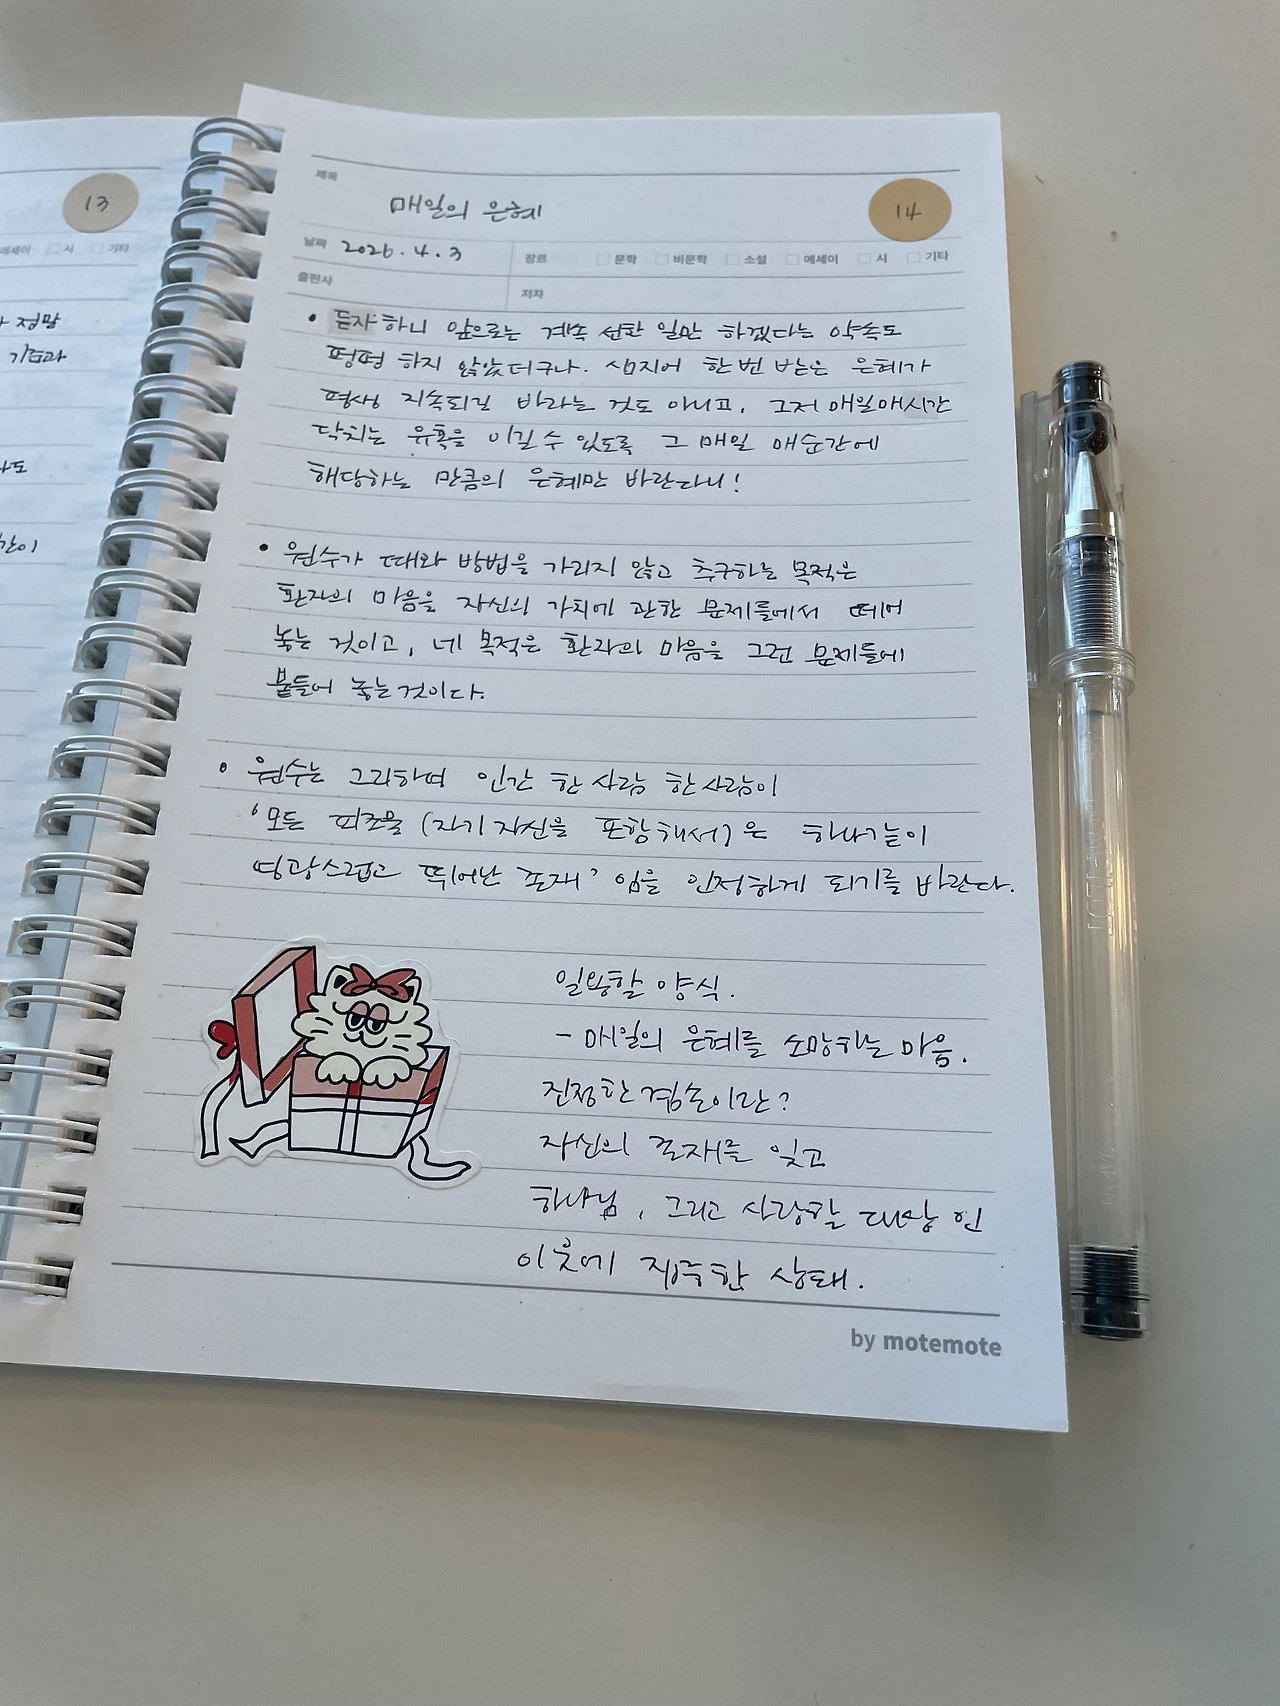 13
에세이 시 기타
정말
기쁨과
제목 매일의 은혜 14
날짜 2026.4.3 장르 문학 비문학 소설 에세이 시 기타
출판사 저자
• 듣자하니 앞으로는 계속 선한 일만 하겠다는 약속도
펑펑 하지 않았더구나. 심지어 한번 받은 은혜가
평생 지속되길 바라는 것도 아니고, 그저 매일매시간
닥치는 유혹을 이길 수 있도록 그 매일 매순간에
해당하는 만큼의 은혜만 바란다니!
• 원수가 때와 방법을 가리지 않고 추구하는 목적은
환자의 마음을 자신의 가치에 관한 문제들에서 떼어
놓는 것이고, 네 목적은 환자의 마음을 그런 문제들에
붙들어 놓는것이다.
• 원수는 그리하여 인간 한 사람 한사람이
'모든 피조물 (자기 자신을 포함해서)은 하나같이
영광스럽고 뛰어난 존재' 임을 인정하게 되기를 바란다.
일용할 양식.
- 매일의 은혜를 소망하는 마음.
진정한 겸손이란?
자신의 존재를 잊고
하나님, 그리고 사랑할 대상 인
이웃에 집중한 상태.
by motemote
PILOT
JAPAN